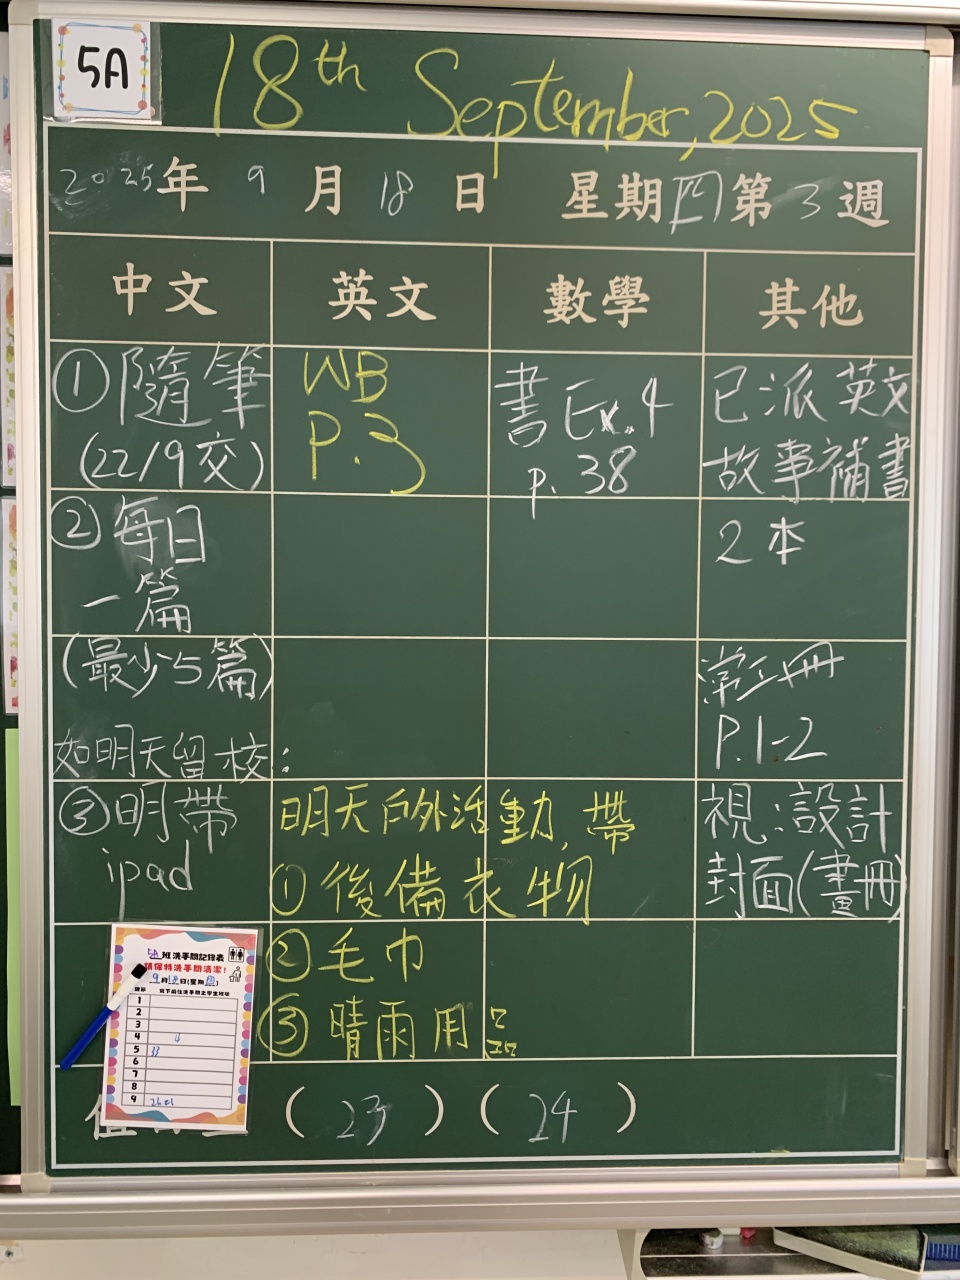 5A
18th September, 2025
2025年 9月 18日 星期四 第3週
中文 英文 數學 其他
①隨筆
(22/9交)
②每日
一篇
(最少5篇)
如明天留校:
③明帶
ipad
WB
P.3
書Ex.4
p.38
已派英文
故事補書
2本
常工冊
P.1-2
視:設計
封面(畫冊)
明天戶外活動,帶
①後備衣物
②毛巾
③晴雨用
5A班洗手間記錄表
請保持洗手間清潔!
9月18日(星期四)
1
2
3
4 4
5 33
6
7
8
9
(23)(24)